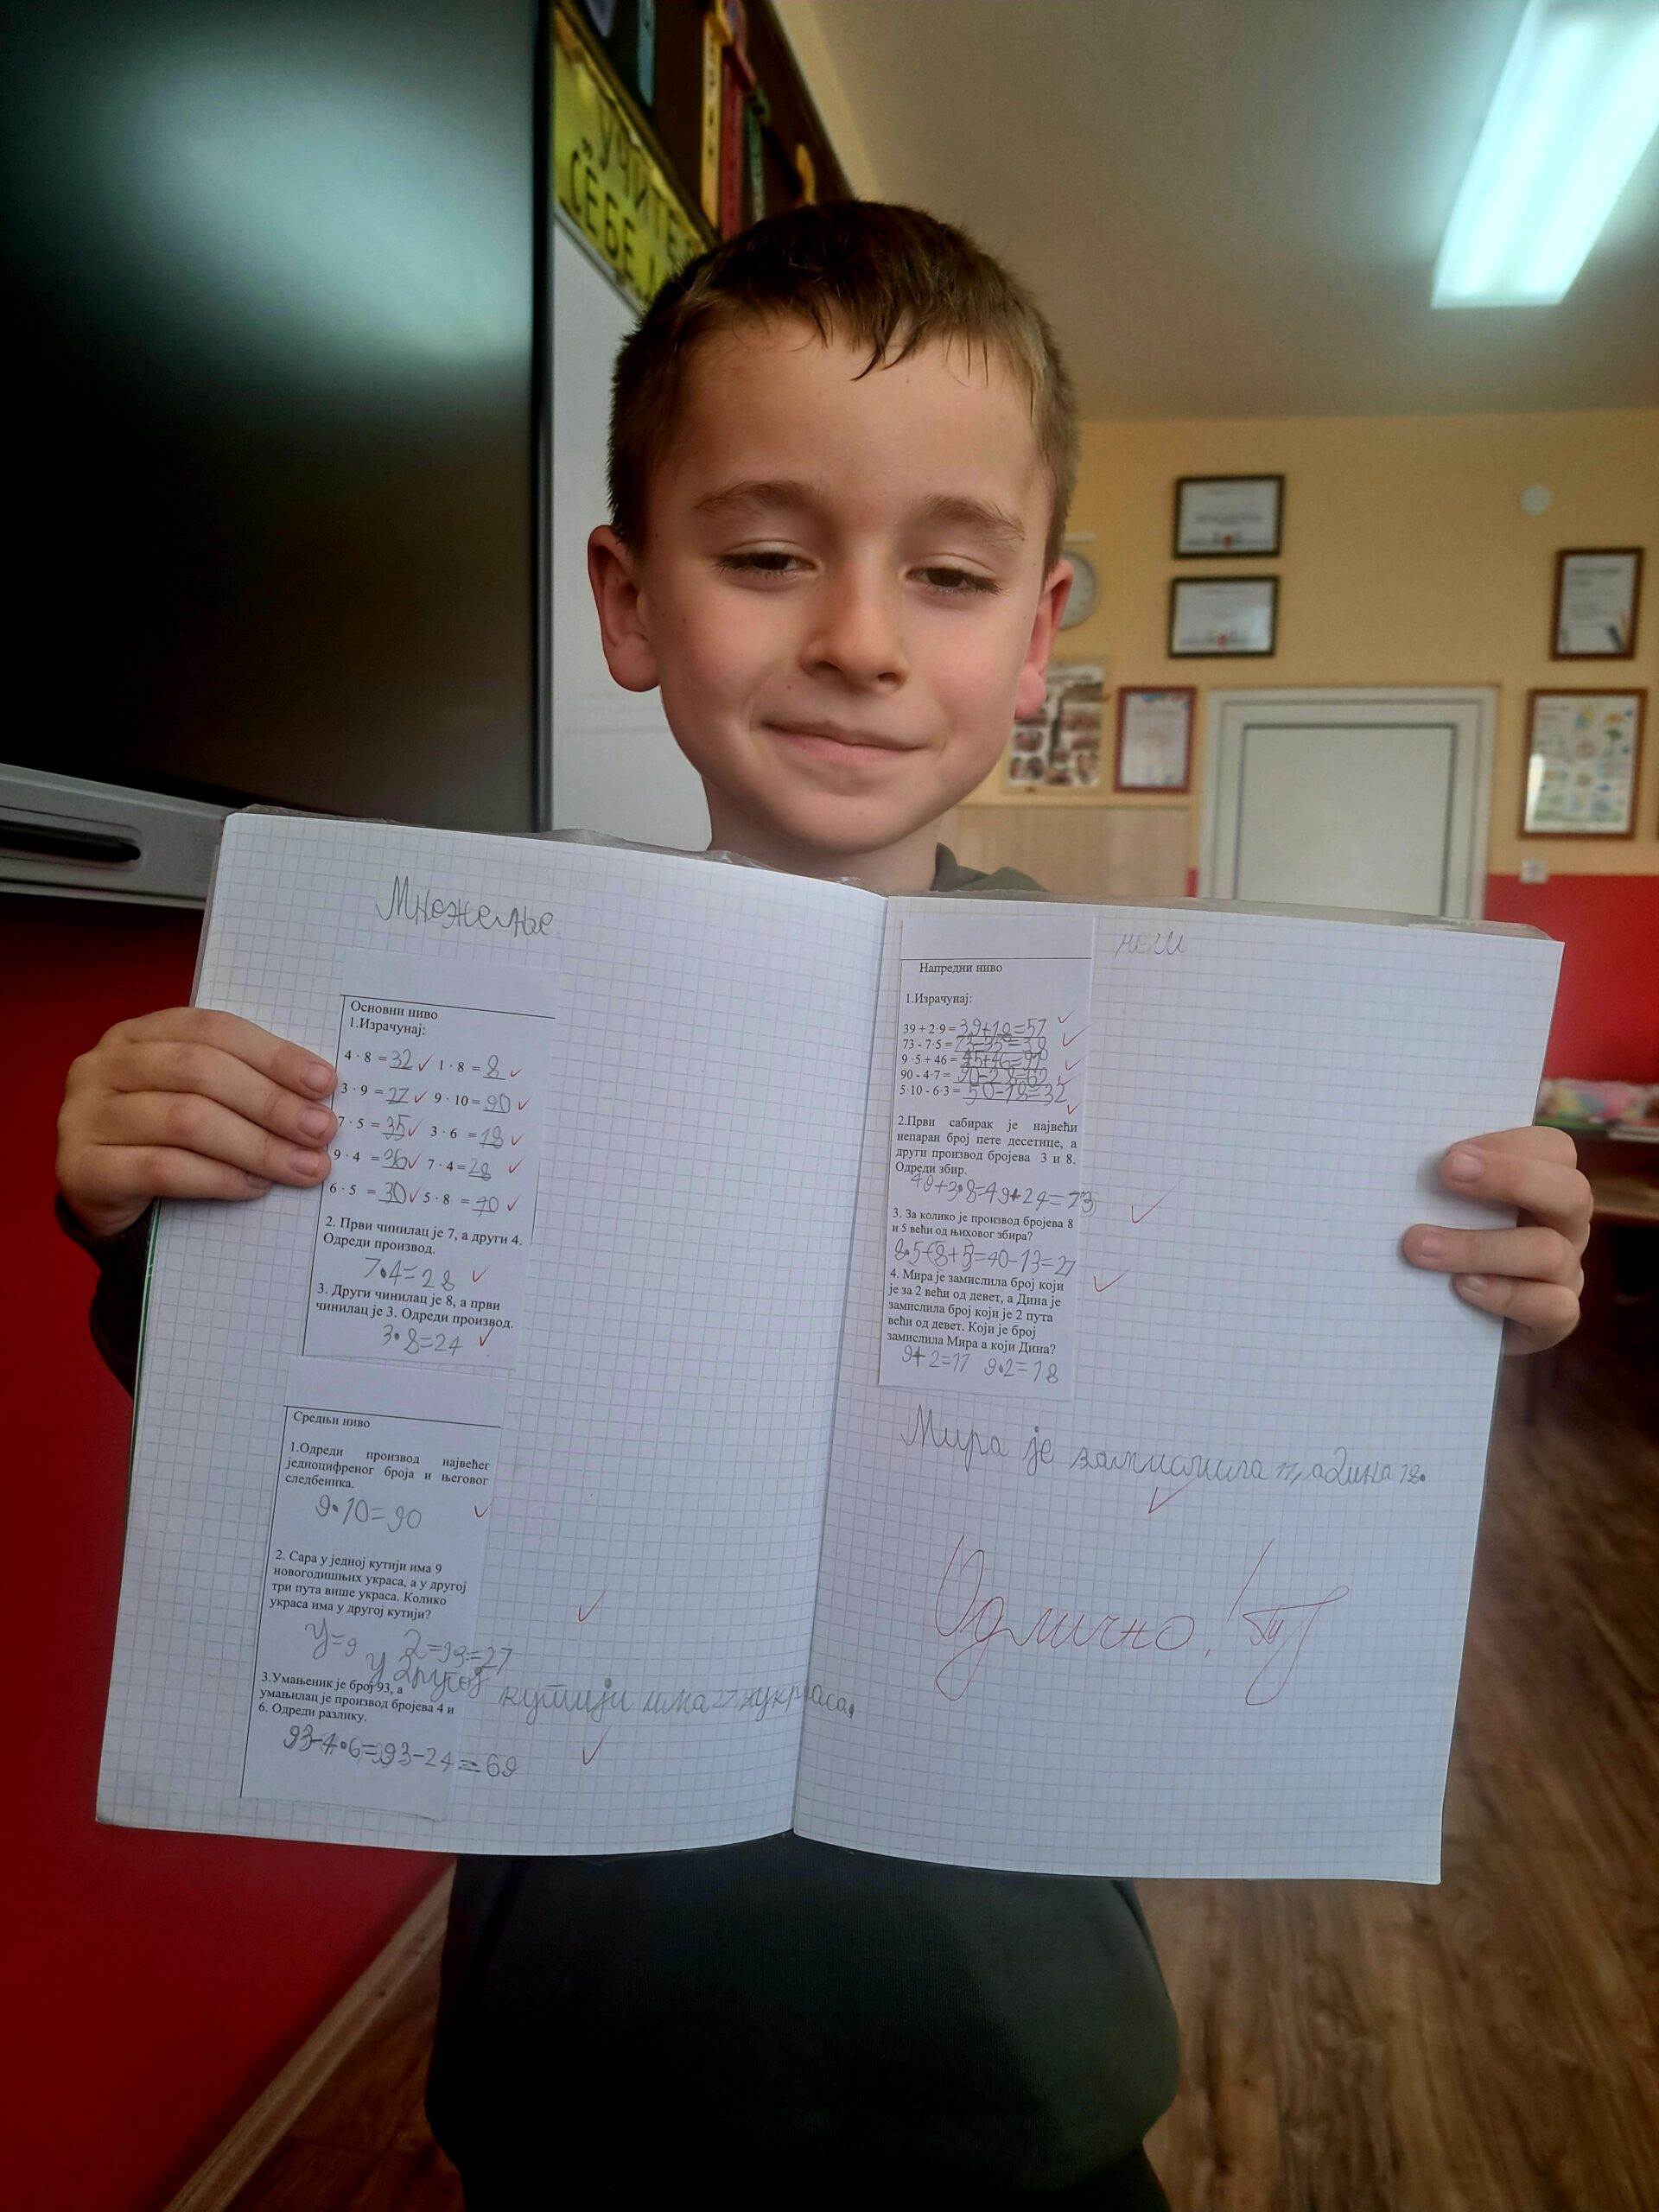 УЧИТЕ
СЕБЕ
Множење
Основни ниво
1.Израчунај:
4 · 8 = 32 1 · 8 = 8
3 · 9 = 27 9 · 10 = 90
7 · 5 = 35 3 · 6 = 18
9 · 4 = 36 7 · 4 = 28
6 · 5 = 30 5 · 8 = 40
2. Први чинилац је 7, а други 4.
Одреди производ.
7·4=28
3. Други чинилац је 8, а први
чинилац је 3. Одреди производ.
3·8=24
Средњи ниво
1.Одреди производ највећег
једноцифреног броја и његовог
следбеника.
9·10=90
2. Сара у једној кутији има 9
новогодишњих украса, а у другој
три пута више украса. Колико
украса има у другој кутији?
у=9 2=93=27
у другој кутији има 27 украса.
3.Умањеник је број 93, а
умањилац је производ бројева 4 и
6. Одреди разлику.
93-4·6=93-24=69
Напредни ниво
1.Израчунај:
39 + 2·9 = 39+18=57
73 - 7·5 = 73-35=38
9 ·5 + 46 = 45+46=91
90 - 4·7 = 90-28=62
5·10 - 6·3 = 50-18=32
2.Први сабирак је највећи
непаран број пете десетице, а
други производ бројева 3 и 8.
Одреди збир.
49+3·8=49+24=73
3. За колико је производ бројева 8
и 5 већи од њиховог збира?
8·5-(8+5)=40-13=27
4. Мира је замислила број који
је за 2 већи од девет, а Дина је
замислила број који је 2 пута
већи од девет. Који је број
замислила Мира а који Дина?
9+2=11 9·2=18
Мира је замислила 11, а Дина 18.
Одлично!